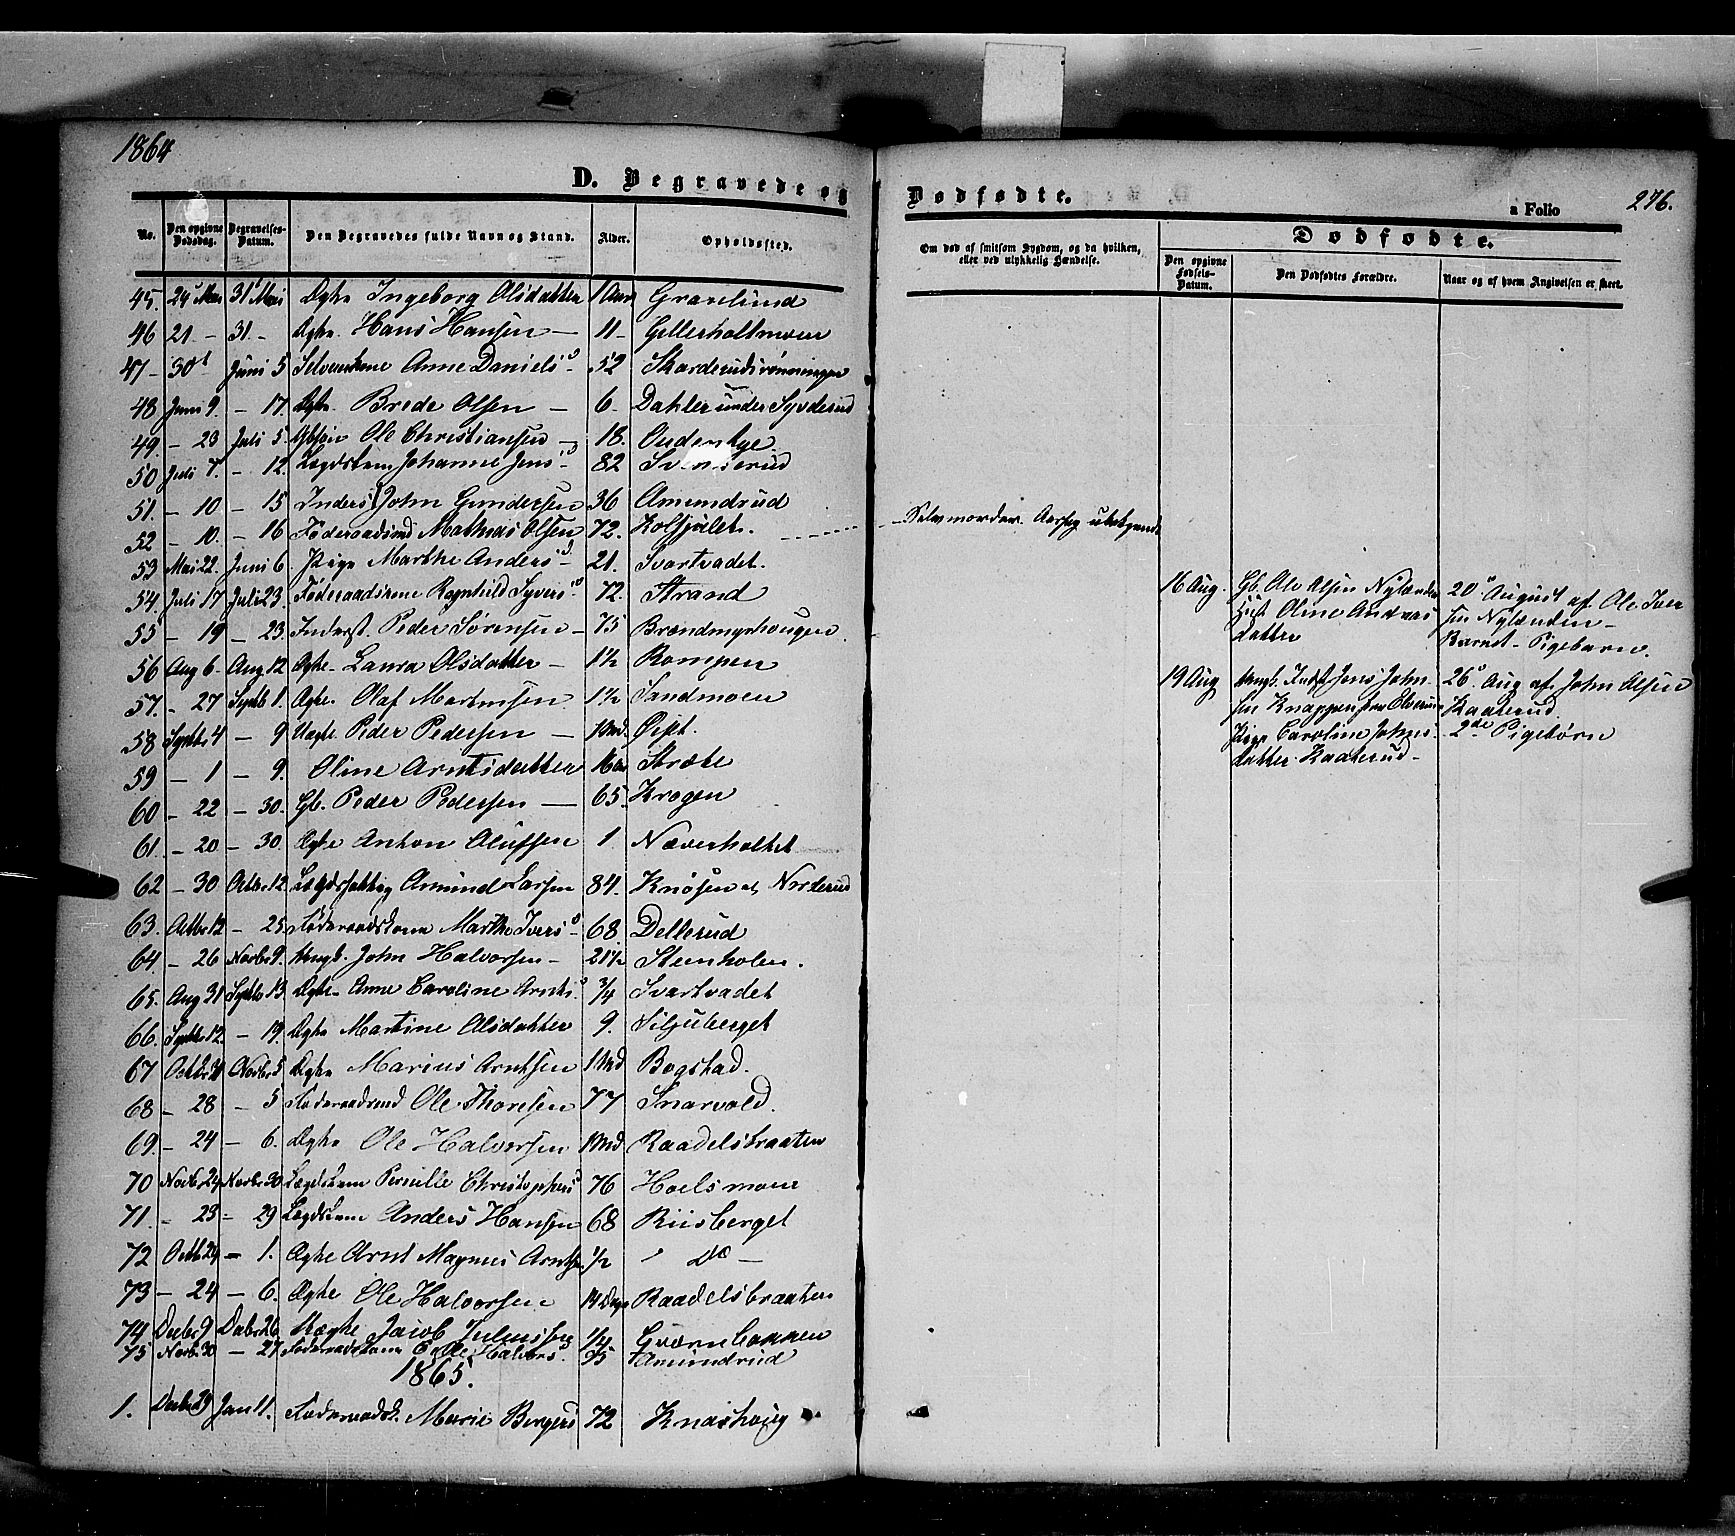 1864
D. Begravede og
No. Den opgivne Dødsdag. Begravelses-Datum. Den Begravedes fulde Navn og Stand. Alder. Opholdssted.
45. 24 Mai 31 Mai Ægte Ingeborg Olsdatter 1 Aar Gravlund
46 21 - 31 - Ægte. Hans Hansen - 11 - Gellerholtmoen
47 - 30 Juni 5 Selveierkone Anne Daniels d - 52 Skarderudsrønningen
48 Juni 9. - 17. Ægte. Brede Olsen - 6. Dahler under Syvderud
49. - 23 Juli 5. Ole Christiansen - 18.
50 Juli 7. - 12. Lægdslem Johanne Jens d 82
51. - 10 - 15 Inderst John Gundersen 36 Amundrud
52 - 10. - 16 Føderaadsmd Mathias Olsen 72. Kolsjølet.
53 Mai 22. Juni 6. Pige Marthe Anders d - 21. Svartvadet.
54. Juli 17 Juli 23. Føderaadskone Ragnhild Syvers d 72. Strand
55 - 19 - 23. Inderst. Peder Sørensen - 75 Brændmyrhougen.
56 Aug 6. Aug 12 Ægte - Laura Olsdatter - 1½ Rompen
57. - 27 Septb 1. Ægte. Olaf Martinsen 1½ Sandmoen
58 Septbr 4 - 9 Uægte Peder Pedersen - 1 Md.
59 - 1 - 9. Oline Arntsdatter Stræte
60 - 22 - 30. Gb. Peder Pedersen - 65. Krogen
61. - 20 - 30. Ægte Anton Olufsen 1 Næverholtet
62 - 30 Octbr 12 Lægdsfattig Amund Larsen 84. Knøsen Norderud
63. Octbr 12 - 25. Føderaadskone Marthe Ivers d - 68. Dellerud
64. - 26 Novbr 9. Ungk. John Halvorsen - 21½ Steinholen.
65. Aug 31 Septb 13 Ægte - Anne Caroline Arnts d ¾ Svartvadet
66. Septbr 12 - 19. Ægte Martine Olsdatter 9. Siljuberget
67 Octbr Novbr 5 Ægte Marius Arntsen 1 Md Bogstad.
68 - 28 - 5 Føderaadsmd Ole Thoresen 77 Snarvold.
69. - 24 - 6. Ægte Ole Halvorsen Md. Raadelsbraaten
70 Novbr 24 Novbr 30 Lægdslem Pernille Christophers d 76 Hoelsmoen
71. - 23 - 29 Lægdslem Anders Hansen 68 Riisberget
72 Octb 24 - 1. Ægte Arnt Magnus Arntsen ½ " Do -
73 - 24 - 6. Ægte Ole Halvorsen 14 Dage Raadelsbraaten
74 Decbr 9 Decbr 26 Uægte Jacob Juliussen ¼ Gværnbakken
75 Novb. 30 - 27 Føderaadskone Halvors d. 75 Amundrud
1865.
1. Decbr 29 Jan 11. Føderaadsk. Marie Bergers d 72 Knashoug
Dødfødte.
a Folio 276.
Om død af smitsom Sygdom, og da hvilken, eller ved ulykkelig Hændelse.
Dødfødte.
Den opgivne Fødsels-Datum. Den Dødfødtes Forældre. Naar og af hvem Angivelsen er skeet.
- Selvmorder. Aarsag ubekjendt
16 Aug. Gb. Ole Olsen Nylænder
Hust. Oline Andreas
datter
20 August af Ole Iver
sen Nylænden -
Barnet - Pigebarn.
19 Aug Ungk. Inds Jens John
sen Knappen fra Elverum
Pige Caroline Johns
datter Kaaterud -
26 Aug af John Olsen
Kaaterud
2de Pigebørn